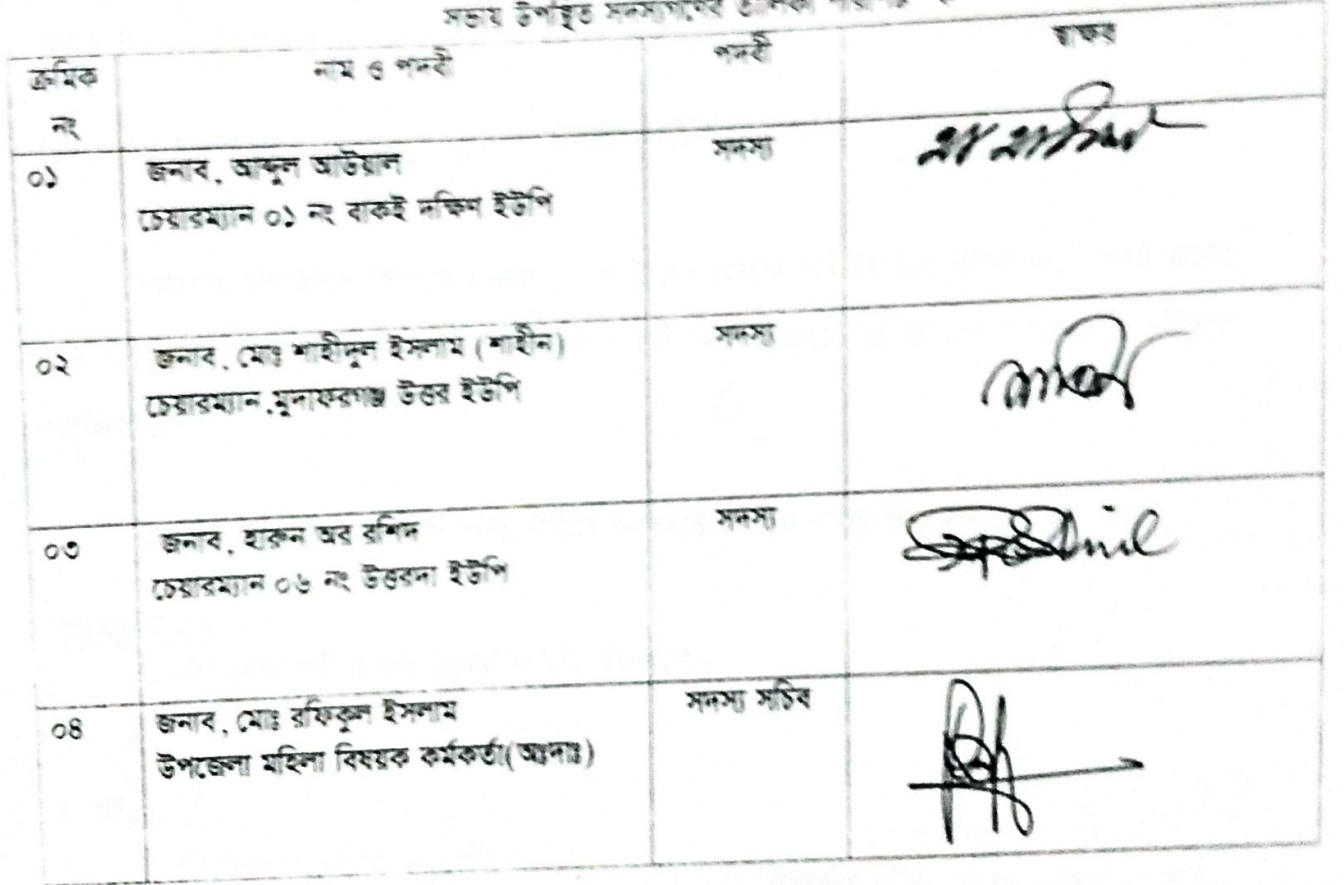 সভায় উপস্থিত সদস্যগণের তালিকা
ক্রমিক নং
নাম ও পদবী
পদবী
স্বাক্ষর
০১
জনাব, আব্দুল আউয়াল
চেয়ারম্যান ০১ নং বাকই দক্ষিণ ইউপি
সদস্য
০২
জনাব, মোঃ শাহীদুল ইসলাম (শাহীন)
চেয়ারম্যান,মুদাফরগঞ্জ উত্তর ইউপি
সদস্য
০৩
জনাব, হারুন অর রশিদ
চেয়ারম্যান ০৬ নং উত্তরদা ইউপি
সদস্য
০৪
জনাব, মোঃ রফিকুল ইসলাম
উপজেলা মহিলা বিষয়ক কর্মকর্তা(অঃদাঃ)
সদস্য সচিব